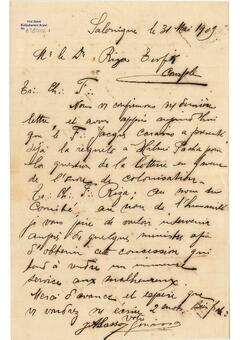 Salonique le 31 Mai 1909
Mr le Dr Riza Tevfik
Consple
T∴ Ch∴ F∴
Nous vs confirmons n/ dernière
lettre et avons appris aujourd'hui
que le F∴ Jacques a présenté
déjà la requête à Hilmi Pacha pour
la question de la lotterie en faveur
de l'Œuvre de colonisation.
T∴ Ch∴ F∴ Riza. Au nom du
Comité au nom de l'humanité
je vous prie de vouloir intervenir
auprès de quelques ministres afin
d'obtenir cette concession qui
tend à rendre un immense
service aux malheureux.
Merci d'avance et espère que
vs voudrez m'écrire 2 mots